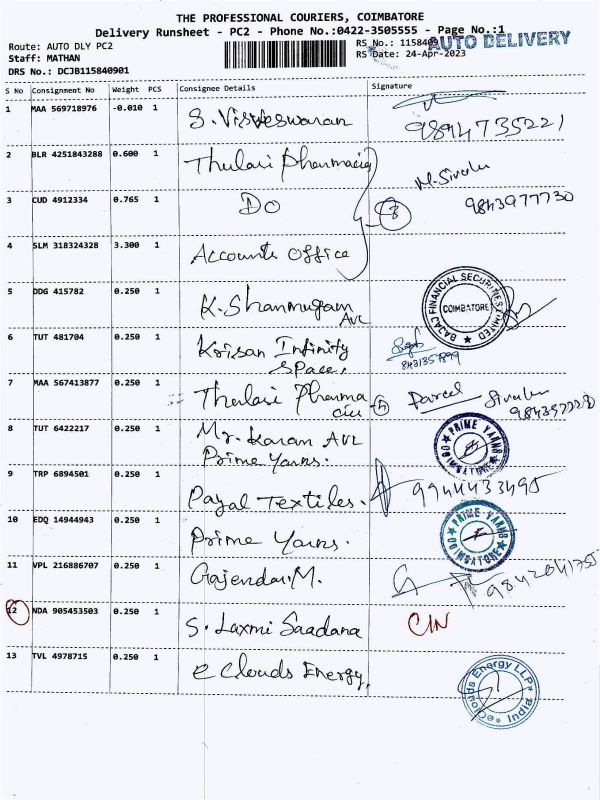 THE PROFESSIONAL COURIERS, COIMBATORE
Delivery Runsheet - PC2 - Phone No.:0422-3505555 - Page No.:1
Route: AUTO DLY PC2
RS No.: 1158409
AUTO DELIVERY
Staff: MATHAN
RS Date: 24-Apr-2023
DRS No.: DCJB115840901
S No Consignment No Weight PCS Consignee Details Signature
1 MAA 569718976 -0.010 1 S. Visweswaran
9894735221
2 BLR 4251843288 0.600 1 Thulasi Pharmacia
M. Sivalu
3 CUD 4912334 0.765 1 DO
8
9843977730
4 SLM 318324328 3.300 1 Accounts Office
5 DDG 415782 0.250 1 K. Shanmugam
AVL
BAJAJ FINANCIAL SECURITIES LIMITED
COIMBATORE
6 TUT 481704 0.250 1 Krisan Infinity
Space,
7 MAA 567413877 0.250 1 Thulasi Pharma
Parcel
8 TUT 6422217 0.250 1 Mr. Karan AVL
Prime Yarns.
PRIME YARNS COIMBATORE
9 TRP 6894501 0.250 1 Payal Textiles.
9944433495
10 EDQ 14944943 0.250 1 Prime Yarns.
PRIME YARNS COIMBATORE
11 VPL 216886707 0.250 1 Gajendar.M.
12 NDA 905453503 0.250 1 S. Laxmi Saadana
C/N
13 TVL 4978715 0.250 1 e Clouds Energy,
eClouds Energy LLP India